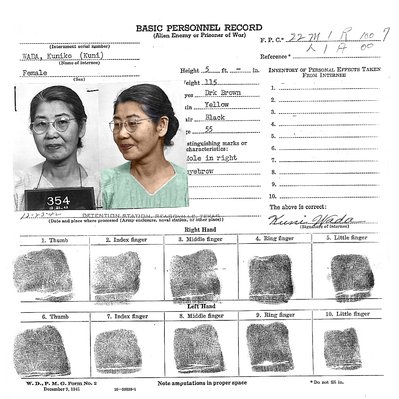 BASIC PERSONNEL RECORD
(Alien Enemy or Prisoner of War)
(Internment serial number)
F. P. C.* 22 M 1 R 100 7
L 1 A 00
WADA, Kuniko (Kuni)
(Name of Internee)
Reference*
Female
(Sex)
Height 5 ft. - in.
eight 115
yes Drk Brown
in Yellow
air Black
e 55
istinguishing marks or
characteristics:
ole in right
yebrow
INVENTORY OF PERSONAL EFFECTS TAKEN
FROM INTERNEE
1.
2.
3.
4.
5.
6.
7.
8.
9.
10.
354
12-23-42 DETENTION STATION, SEAGOVILLE, TEXAS
(Date and place where processed (Army enclosure, naval station, or other place))
The above is correct:
Kuni Wada
(Signature of internee)
Right Hand
1. Thumb 2. Index finger 3. Middle finger 4. Ring finger 5. Little finger
Left Hand
6. Thumb 7. Index finger 8. Middle finger 9. Ring finger 10. Little finger
W. D., P. M. G. Form No. 2
December 9, 1941
Note amputations in proper space
* Do not fill in.